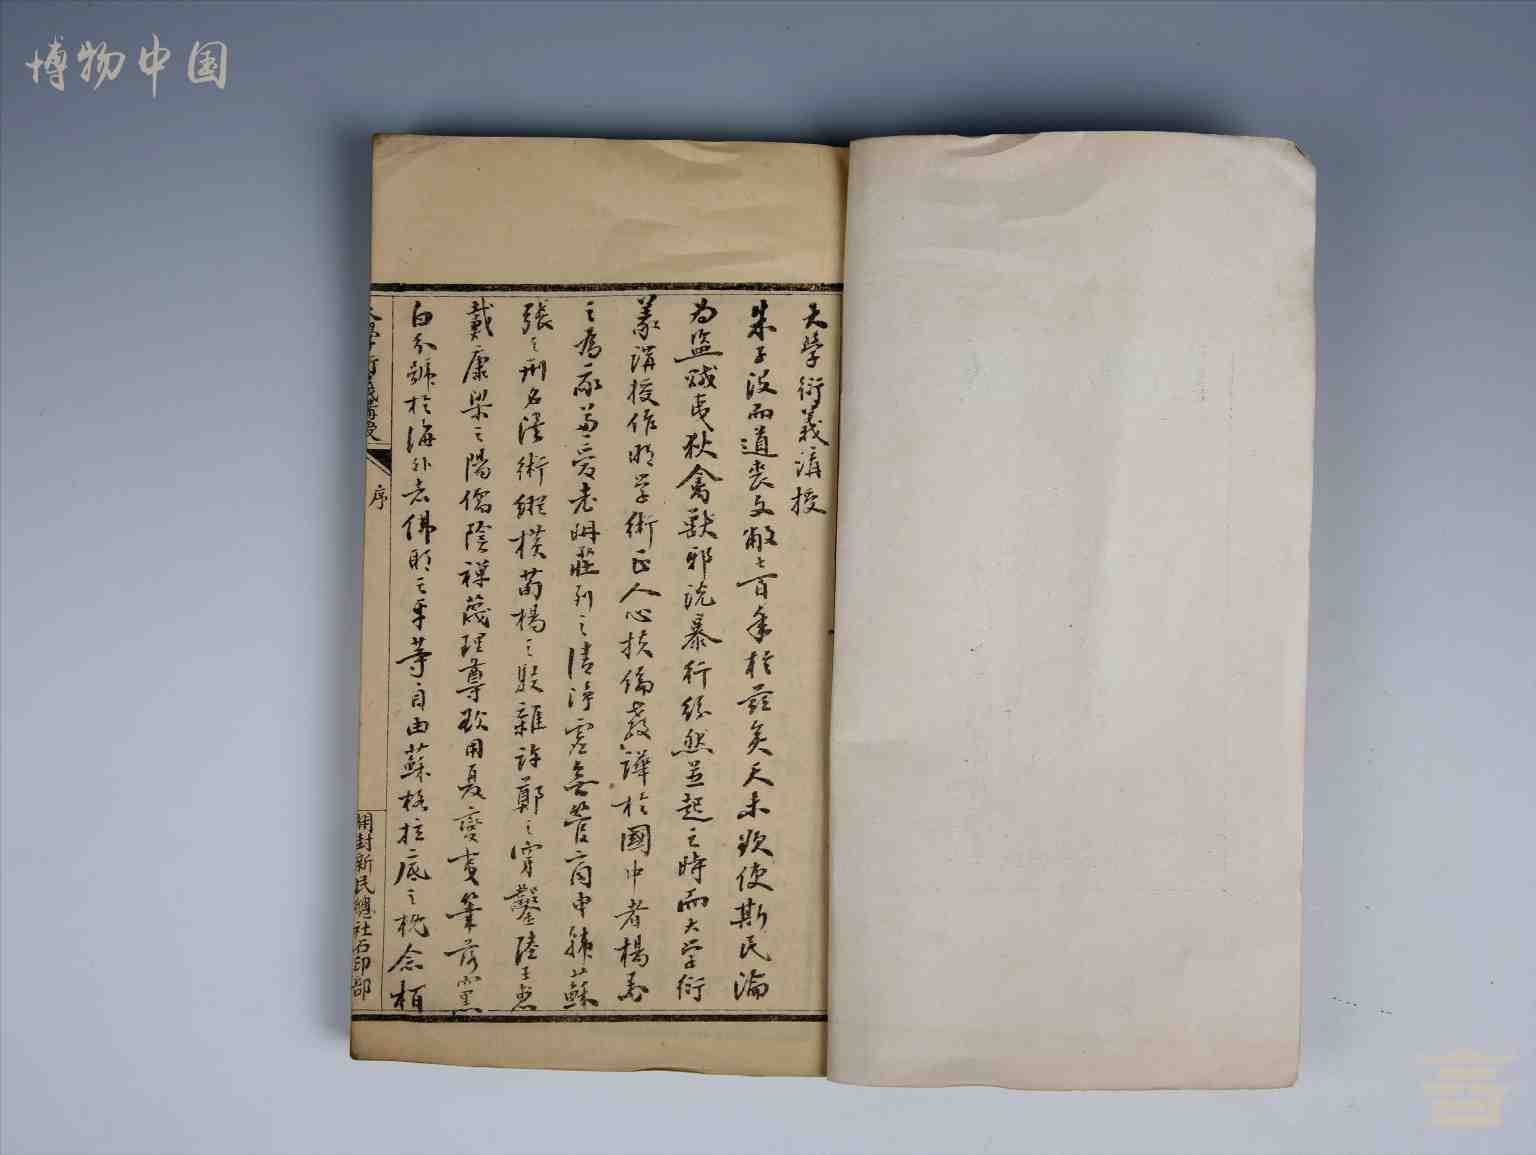 博物中国
大學衍義講授
朱子沒而道喪文敝七百年於茲矣天未欲使斯民淪
為盜賊夷狄禽獸邪說暴行紛然並起之時而大學衍
義講授作明學術正人心扶偏教譁於國中者楊馬
之為我兼愛老冉莊列之清淨虛無管商申韓蘇
張之刑名法術縱橫荀楊之駁雜許鄭之穿鑿陸王
戴康梁之陽儒陰禪蔑理尊欲用夏變夷筆落
白分號於海外者佛耶之平等自由蘇格拉底之概念柏
大學衍義講授
序
開封新民總社石印部